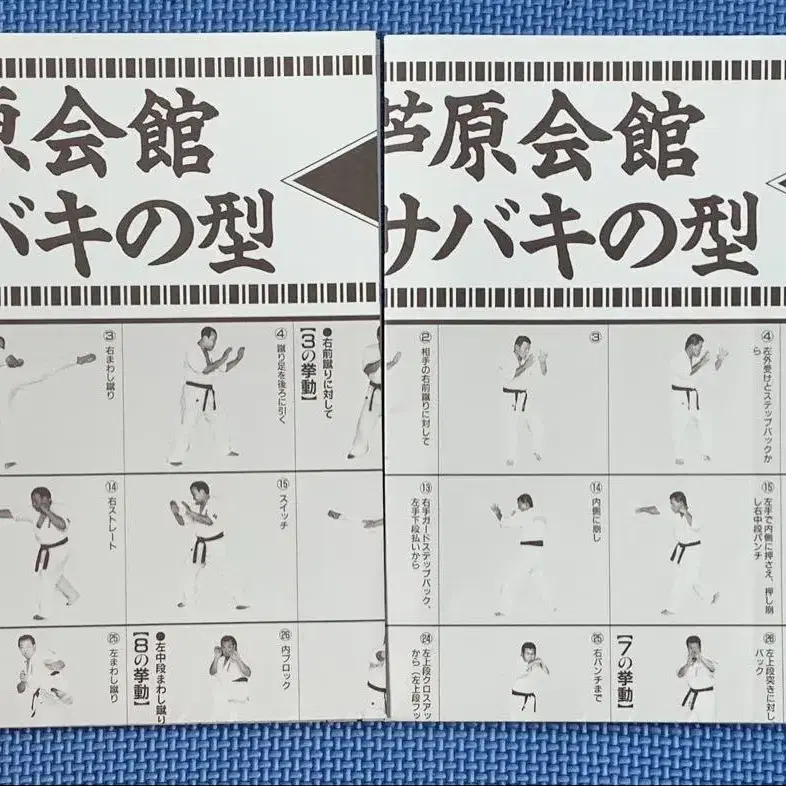 原会館
バキの型
③ 右まわし蹴り
④ 蹴り足を後ろに引く
●右前蹴りに対して
【3の挙動】
⑭ 右ストレート
⑮ スイッチ
㉕ 左まわし蹴り
●左中段まわし蹴り
【8の挙動】
㉖ 内ブロック
芦原会館
サバキの型
② 相手の右前蹴りに対して
③
④ 左外受けとステップバックか
ら
⑬ 右手ガードステップバック、
左手下段払いから
⑭ 内側に崩し
⑮ 左手で内側に押さえ、押し崩
し右中段パンチ
㉔ 左上段クロスアッ
から(左上段フッ
㉕ 右パンチまで
【7の挙動】
㉖ 左上段突きに対し
バック